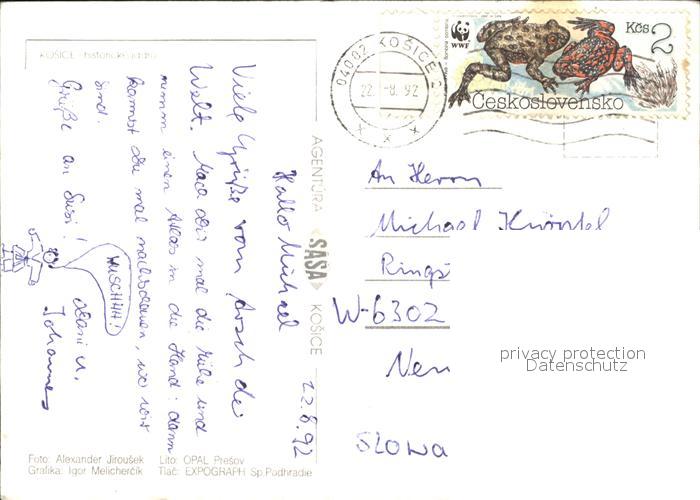 KOŠICE - historické jadro
22.8.92
Hallo Michael
Viele Grüße vom Arsch de
Welt. Mach dir mal die Mühe und
nimm einen Atlas in die Hand: dann
kannst du mal nachschauen, wo wir
sind.
Grüße an Susi!
HUSCHHH!
Dani u.
Johannes
AGENTÚRA SAŠA KOŠICE
Foto: Alexander Jiroušek Lito: OPAL Prešov
Grafika: Igor Melicherčík Tlač: EXPOGRAPH Sp.Podhradie
04002 KOŠICE 2
22. -8. 92
WWF
Kčs 2
Československo
An Herrn
Michael
Rings
W-6302
Neu
SLOWA
privacy protection
Datenschutz